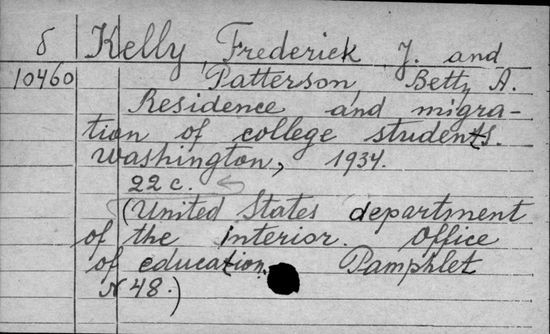 δ Kelly, Frederick J. and
10460 Patterson, Betty A.
Residence and migra-
tion of college students.
Washington, 1934.
22 c.
(United States department
of the interior. Office
of education. Pamphlet
N 48.)